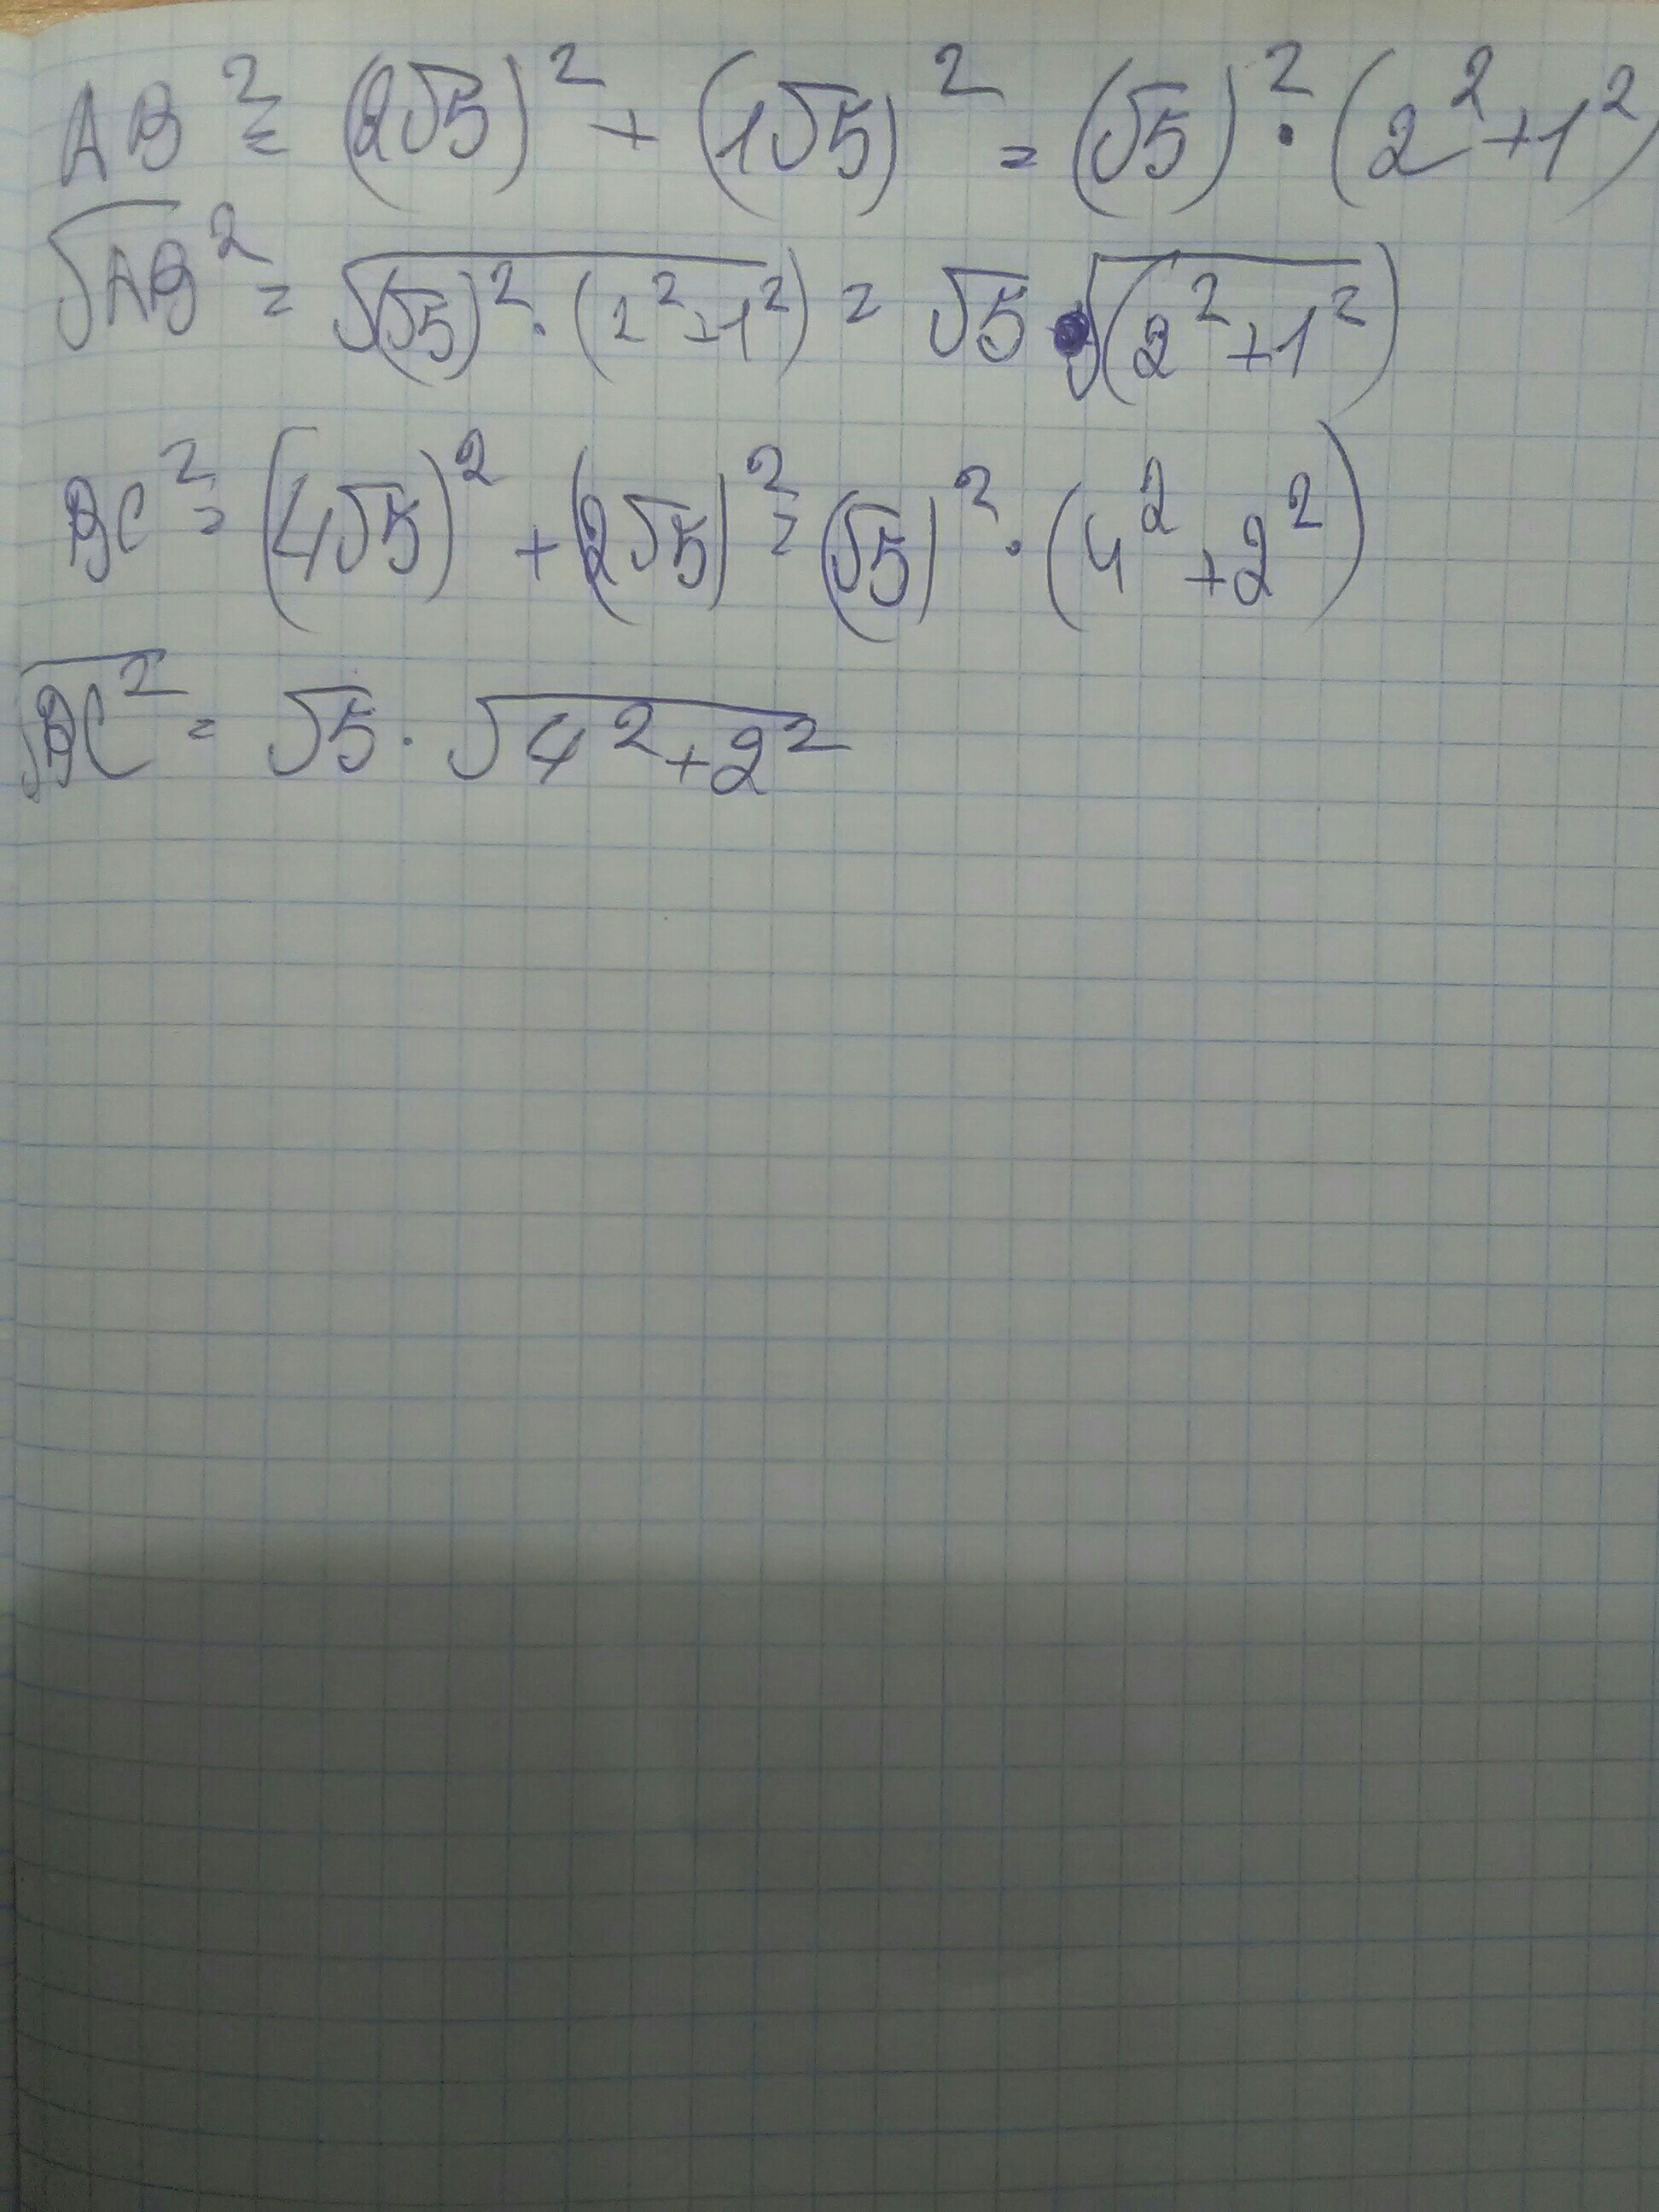 AB² = (2√5)² + (1√5)² = (√5)² · (2² + 1²)
√AB² = √(√5)² · (2² + 1²) = √5 · √(2² + 1²)
BC² = (4√5)² + (2√5)² = (√5)² · (4² + 2²)
√BC² = √5 · √4² + 2²